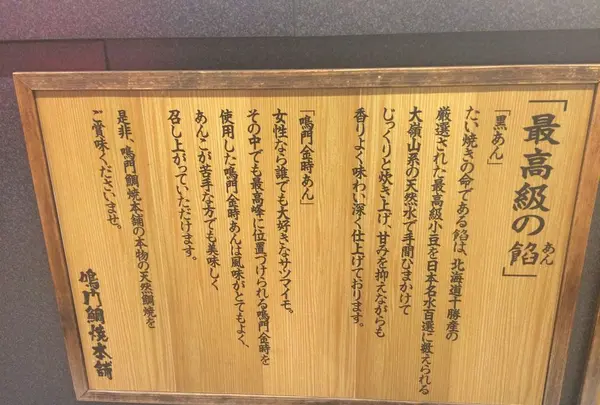 「最高級の餡」
あん
「黒あん」
たい焼きの命である餡は、北海道十勝産の
厳選された最高級小豆を日本名水百選に数えられる
大嶺山系の天然水で手間ひまかけて
じっくりと炊き上げ、甘みを抑えながらも
香りよく味わい深く仕上げております。
「鳴門金時あん」
女性なら誰でも大好きなサツマイモ。
その中でも最高峰に位置づけられる鳴門金時を
使用した鳴門金時あんは風味がとてもよく、
あんこが苦手な方でも美味しく
召し上がっていただけます。
是非、鳴門鯛焼本舗の本物の天然鯛焼を
ご賞味くださいませ。
鳴門鯛焼本舗